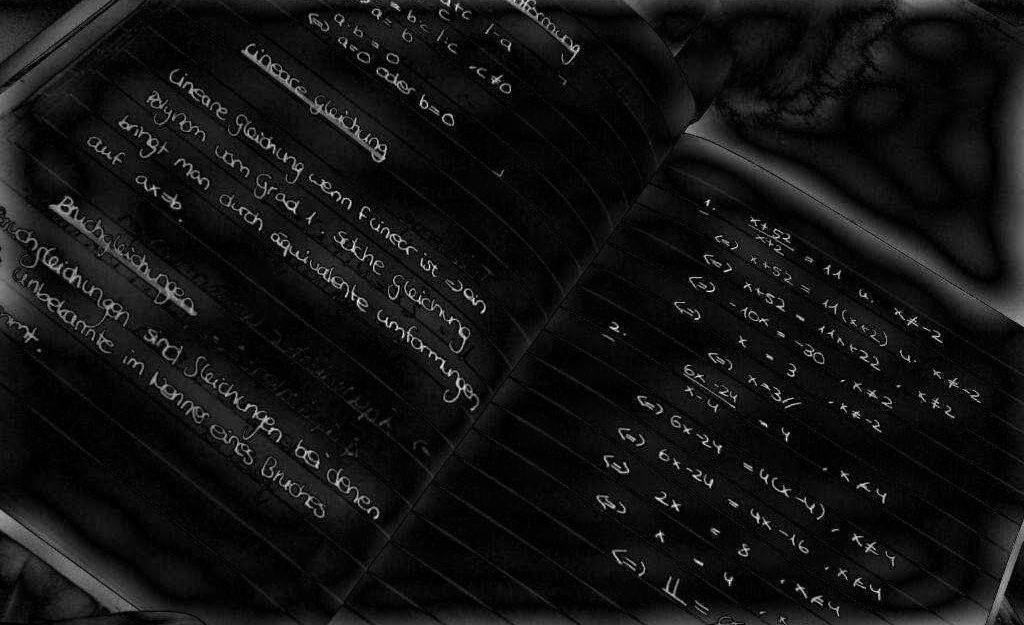 = bc | :c , c≠0
a = b
a·b = 0
⇔ a=0 oder b=0
Lineare gleichung
Lineare gleichung wenn f linear ist → an
Polynom vom Grad 1. Solche gleichung
bringt man durch äquivalente umformungen
auf ax=b.
Bruchgleichungen
Bruchgleichungen sind gleichungen bei denen
unbekannte im Nenner eines Bruches
1. x+52/x+2 = 11 u. x≠-2
⇔ x+52 = 11(x+2) u. x≠-2
⇔ x+52 = 11x+22 , x≠2
⇔ -10x = -30 , x≠2
⇔ x = 3 , x≠-2
⇔ x=3//
2. 6x-24/x-4 = 4 , x≠4
⇔ 6x-24 = 4(x-4) , x≠4
⇔ 6x-24 = 4x-16 , x≠4
⇔ 2x = 8 , x≠4
⇔ x = 4
⇔ 𝕃 =